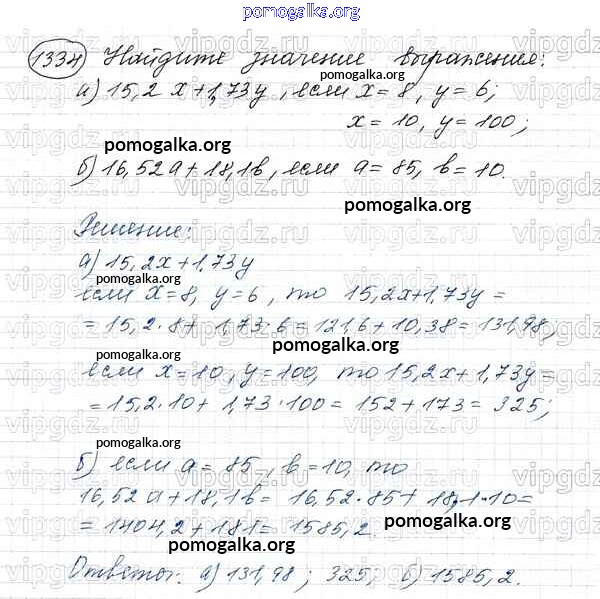 pomogalka.org
1334 Найдите значение выражение:
а) 15,2x+1,73y, если x=8, y=6;
x=10, y=100;
pomogalka.org
б) 16,52a+18,1b, если a=85, b=10.
pomogalka.org
Решение:
а) 15,2x+1,73y
pomogalka.org
если x=8, y=6, то 15,2x+1,73y=
=15,2·8+1,73·6=121,6+10,38=131,98;
pomogalka.org
если x=10, y=100, то 15,2x+1,73y=
=15,2·10+1,73·100=152+173=325;
pomogalka.org
б) если a=85, b=10, то
16,52a+18,1b=16,52·85+18,1·10=
=1404,2+181=1585,2.
pomogalka.org
pomogalka.org
Ответы: а) 131,98; 325; б) 1585,2.
vipgdz.ru